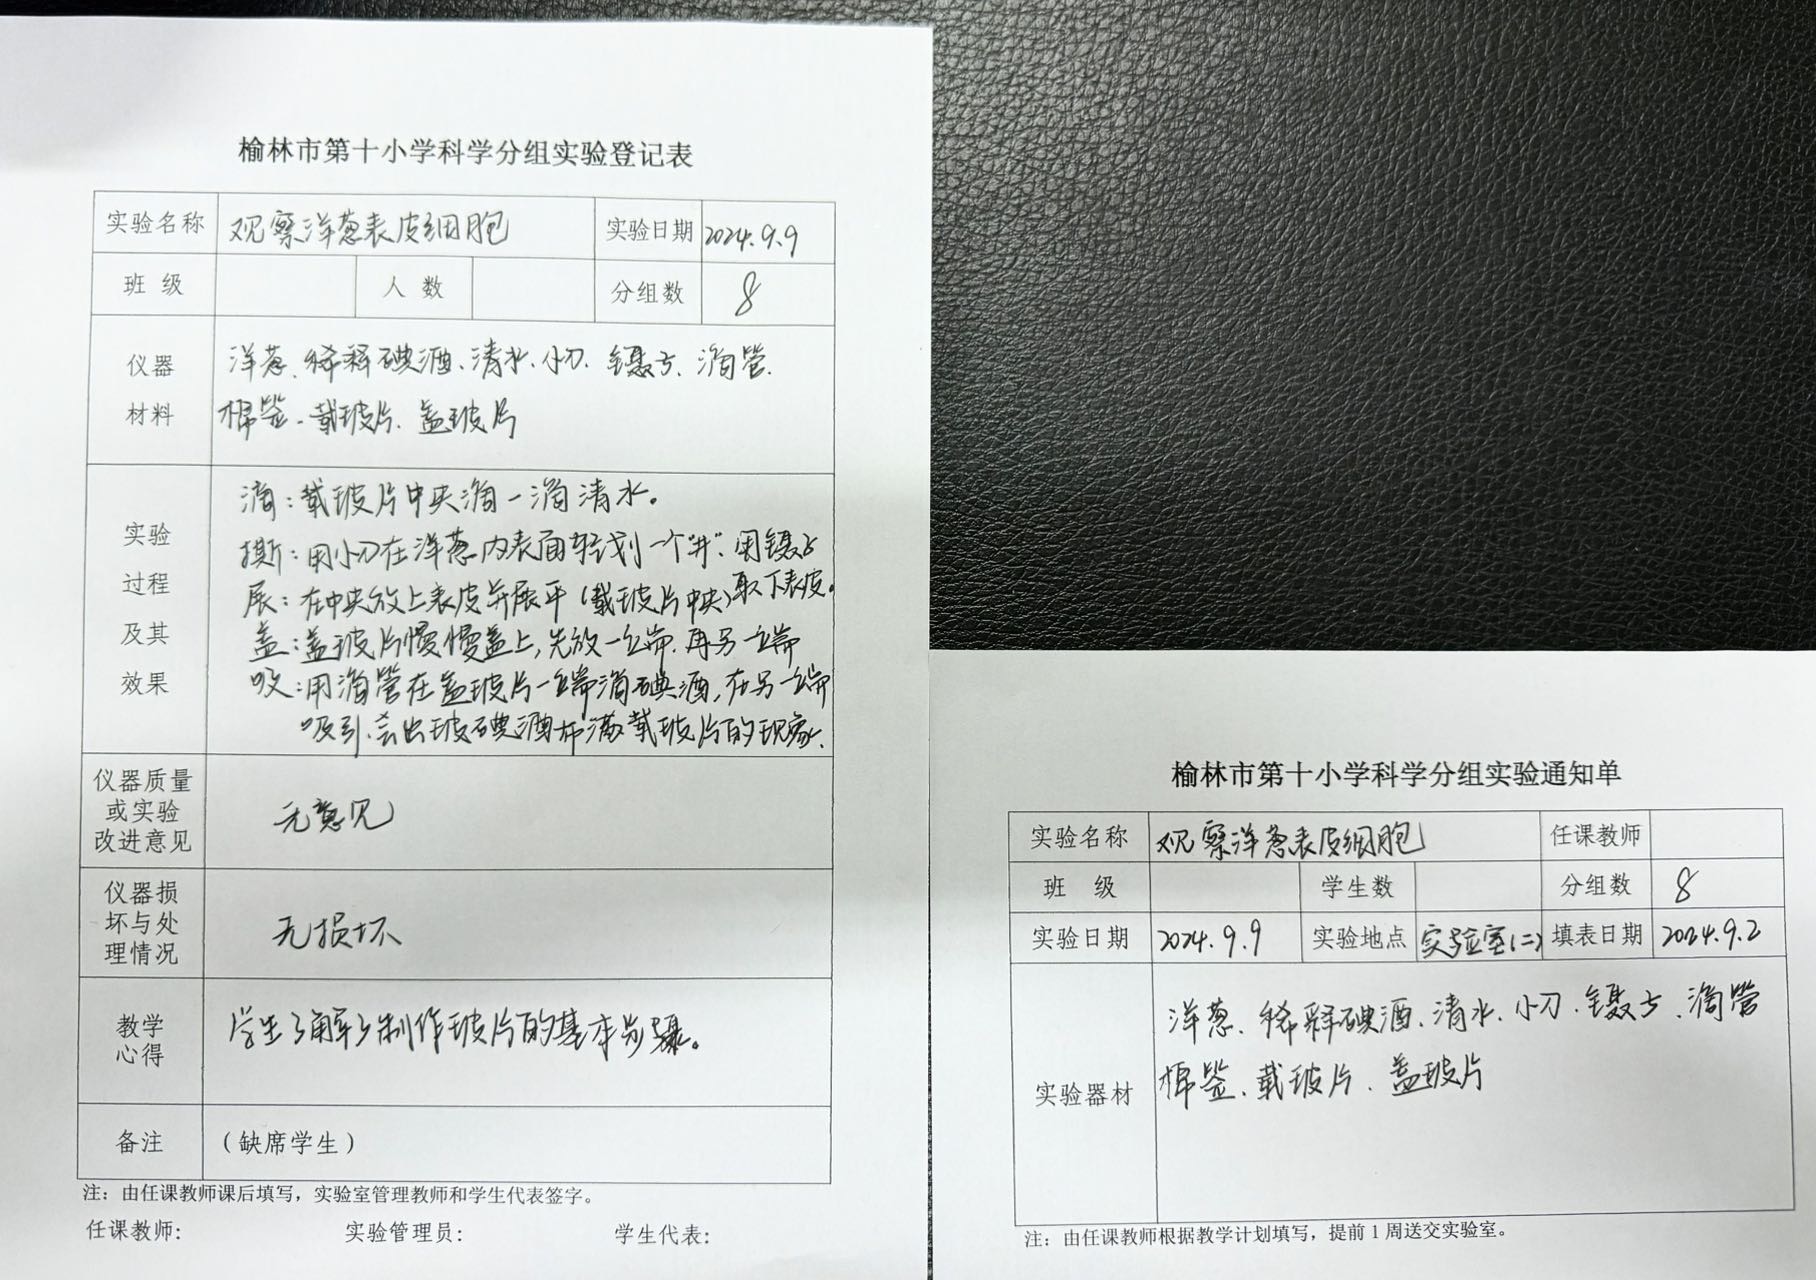 榆林市第十小学科学分组实验登记表
实验名称 观察洋葱表皮细胞 实验日期 2024.9.9
班 级 人 数 分组数 8
仪器
材料
洋葱、稀释碘酒、清水、小刀、镊子、滴管、
棉签、载玻片、盖玻片
实验
过程
及其
效果
滴：载玻片中央滴一滴清水。
撕：用小刀在洋葱内表面轻划一个“井”，用镊子
取下表皮。
展：在中央放上表皮并展平（载玻片中央）
盖：盖玻片慢慢盖上，先放一端，再另一端
吸：用滴管在盖玻片一端滴碘酒，在另一端
吸引，会出现碘酒布满载玻片的现象。
仪器质量
或实验
改进意见
无意见
仪器损
坏与处
理情况
无损坏
教学
心得
学生了解了制作玻片的基本步骤。
备注 （缺席学生）
注：由任课教师课后填写，实验室管理教师和学生代表签字。
任课教师: 实验管理员: 学生代表:
榆林市第十小学科学分组实验通知单
实验名称 观察洋葱表皮细胞 任课教师
班 级 学生数 分组数 8
实验日期 2024.9.9 实验地点 实验室(二) 填表日期 2024.9.2
实验器材
洋葱、稀释碘酒、清水、小刀、镊子、滴管
棉签、载玻片、盖玻片
注：由任课教师根据教学计划填写，提前1周送交实验室。